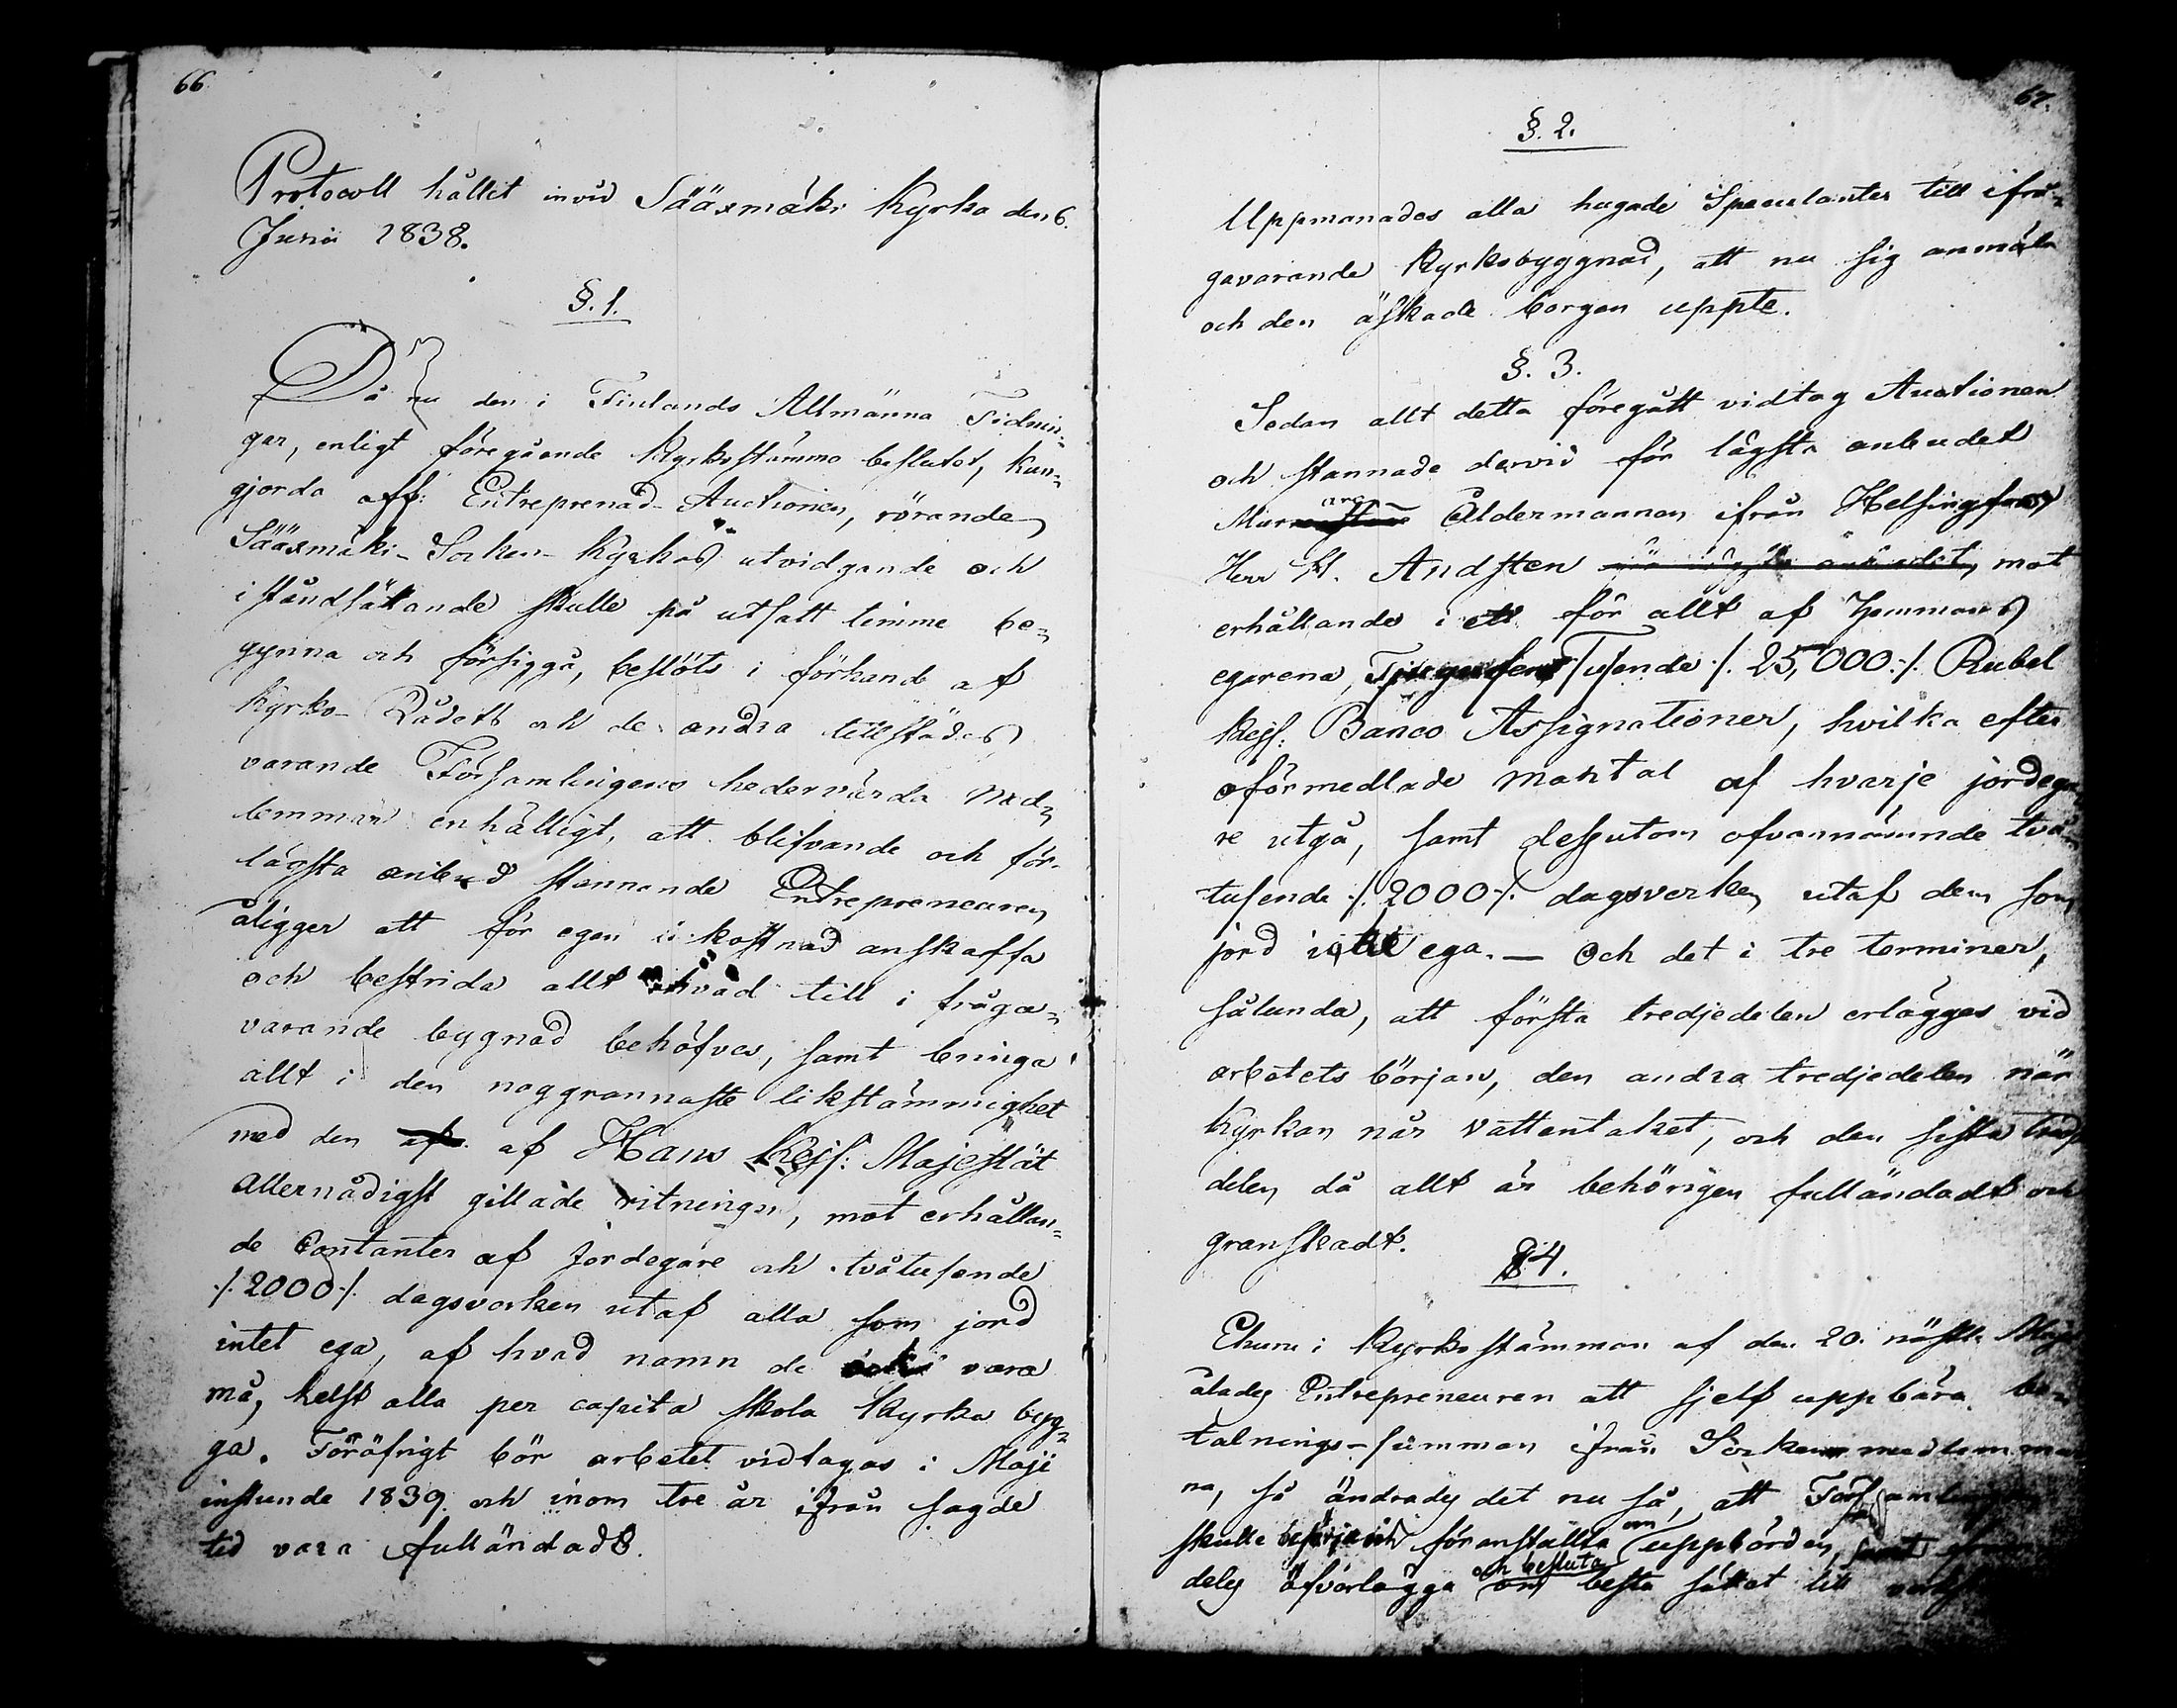 66
Protocoll hållit invid Sääxmäki Kyrka den 6.
Junii 1838.
§. 1.
Då nu den i Finlands Allmänna Tidnin=
gar, enligt föregående Kyrkostämmo beslutet, kun=
gjorda off: Entreprenad-Auctionen, rörande
Sääxmäki-Socken-Kyrkas utvidgande och
iståndsättande skulle på utsatt timme be=
gynna och försiggå, beslöts i förhand af
Kyrko-Rådett och de andra tillstädes
varande Församlingens hedervärda Med=
lemmar enhälligt, att blifvande och för
lägsta anbud stannande Entrepreneuren
åligger att för egen kostnad anskaffa
och bestrida allt hvad till i fråga=
varande bygnad behöfves, samt bringa
allt i den noggrannaste likstämmighet
med den af Hans Kejs: Majestät
Allernådigst gillade ritningen, mot erhållan=
de Contanter af jordegare och tvåtusende
./. 2000 ./. dagsverken utaf alla som jord
intet ega, af hvad namn de vara
må, helst alla per capita skola Kyrka byg=
ga. Föröfrigt bör arbetet vidtagas i Maji
instunde 1839. och inom tre år ifrån sagde
tid vara fulländadt.
67.
§. 2.
Uppmanades alla hugade Speculanter till ifrå=
gavarande Kyrkobyggnad, att nu sig anmäla
och den äskade borgen uppte.
§. 3.
Sedan allt detta föregått vidtog Auctionen
och stannade dervid för lägsta anbudet
Murare Åldermannen ifrån Helsingfors
Herr H. Andsten mot
erhållande i ett för allt af Hemmans
egarena, Tjugufem Tusende ./. 25,000 ./. Rubel
Kejs: Banco Assignationer, hvilka efter
oförmedlade mantal af hvarje jordega
re utgå, samt dessutom ofvannämnde två
tusende ./. 2000 ./. dagsverken utaf dem som
jord intet ega. — Och det i tre terminer,
sålunda, att första tredjedelen erlägges vid
arbetets början, den andra tredjedelen när
Kyrkan når Vattentaket, och den sista tredje
delen då allt är behörigen fulländadt och
granskadt.
§ 4.
Ehuru i Kyrkostämman af den 20. nästl. Maji
ålades Entrepreneuren att sjelf uppbära be=
talnings-summan ifrån Sockenmedlemmar
na, så ändrades det nu så, att Församlingen
skulle föranstallta om uppbörden, samt
dels öfverlägga och besluta om bästa sättet till